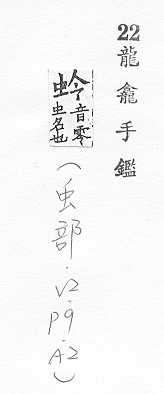 22龍龕手鑑
蛉音零
虫名也
(虫部.V2.P9.A2)